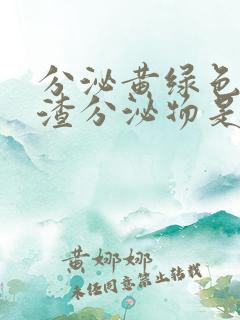 分泌黄绿色
渣分泌物是
黄娜娜
未经同意禁止转载